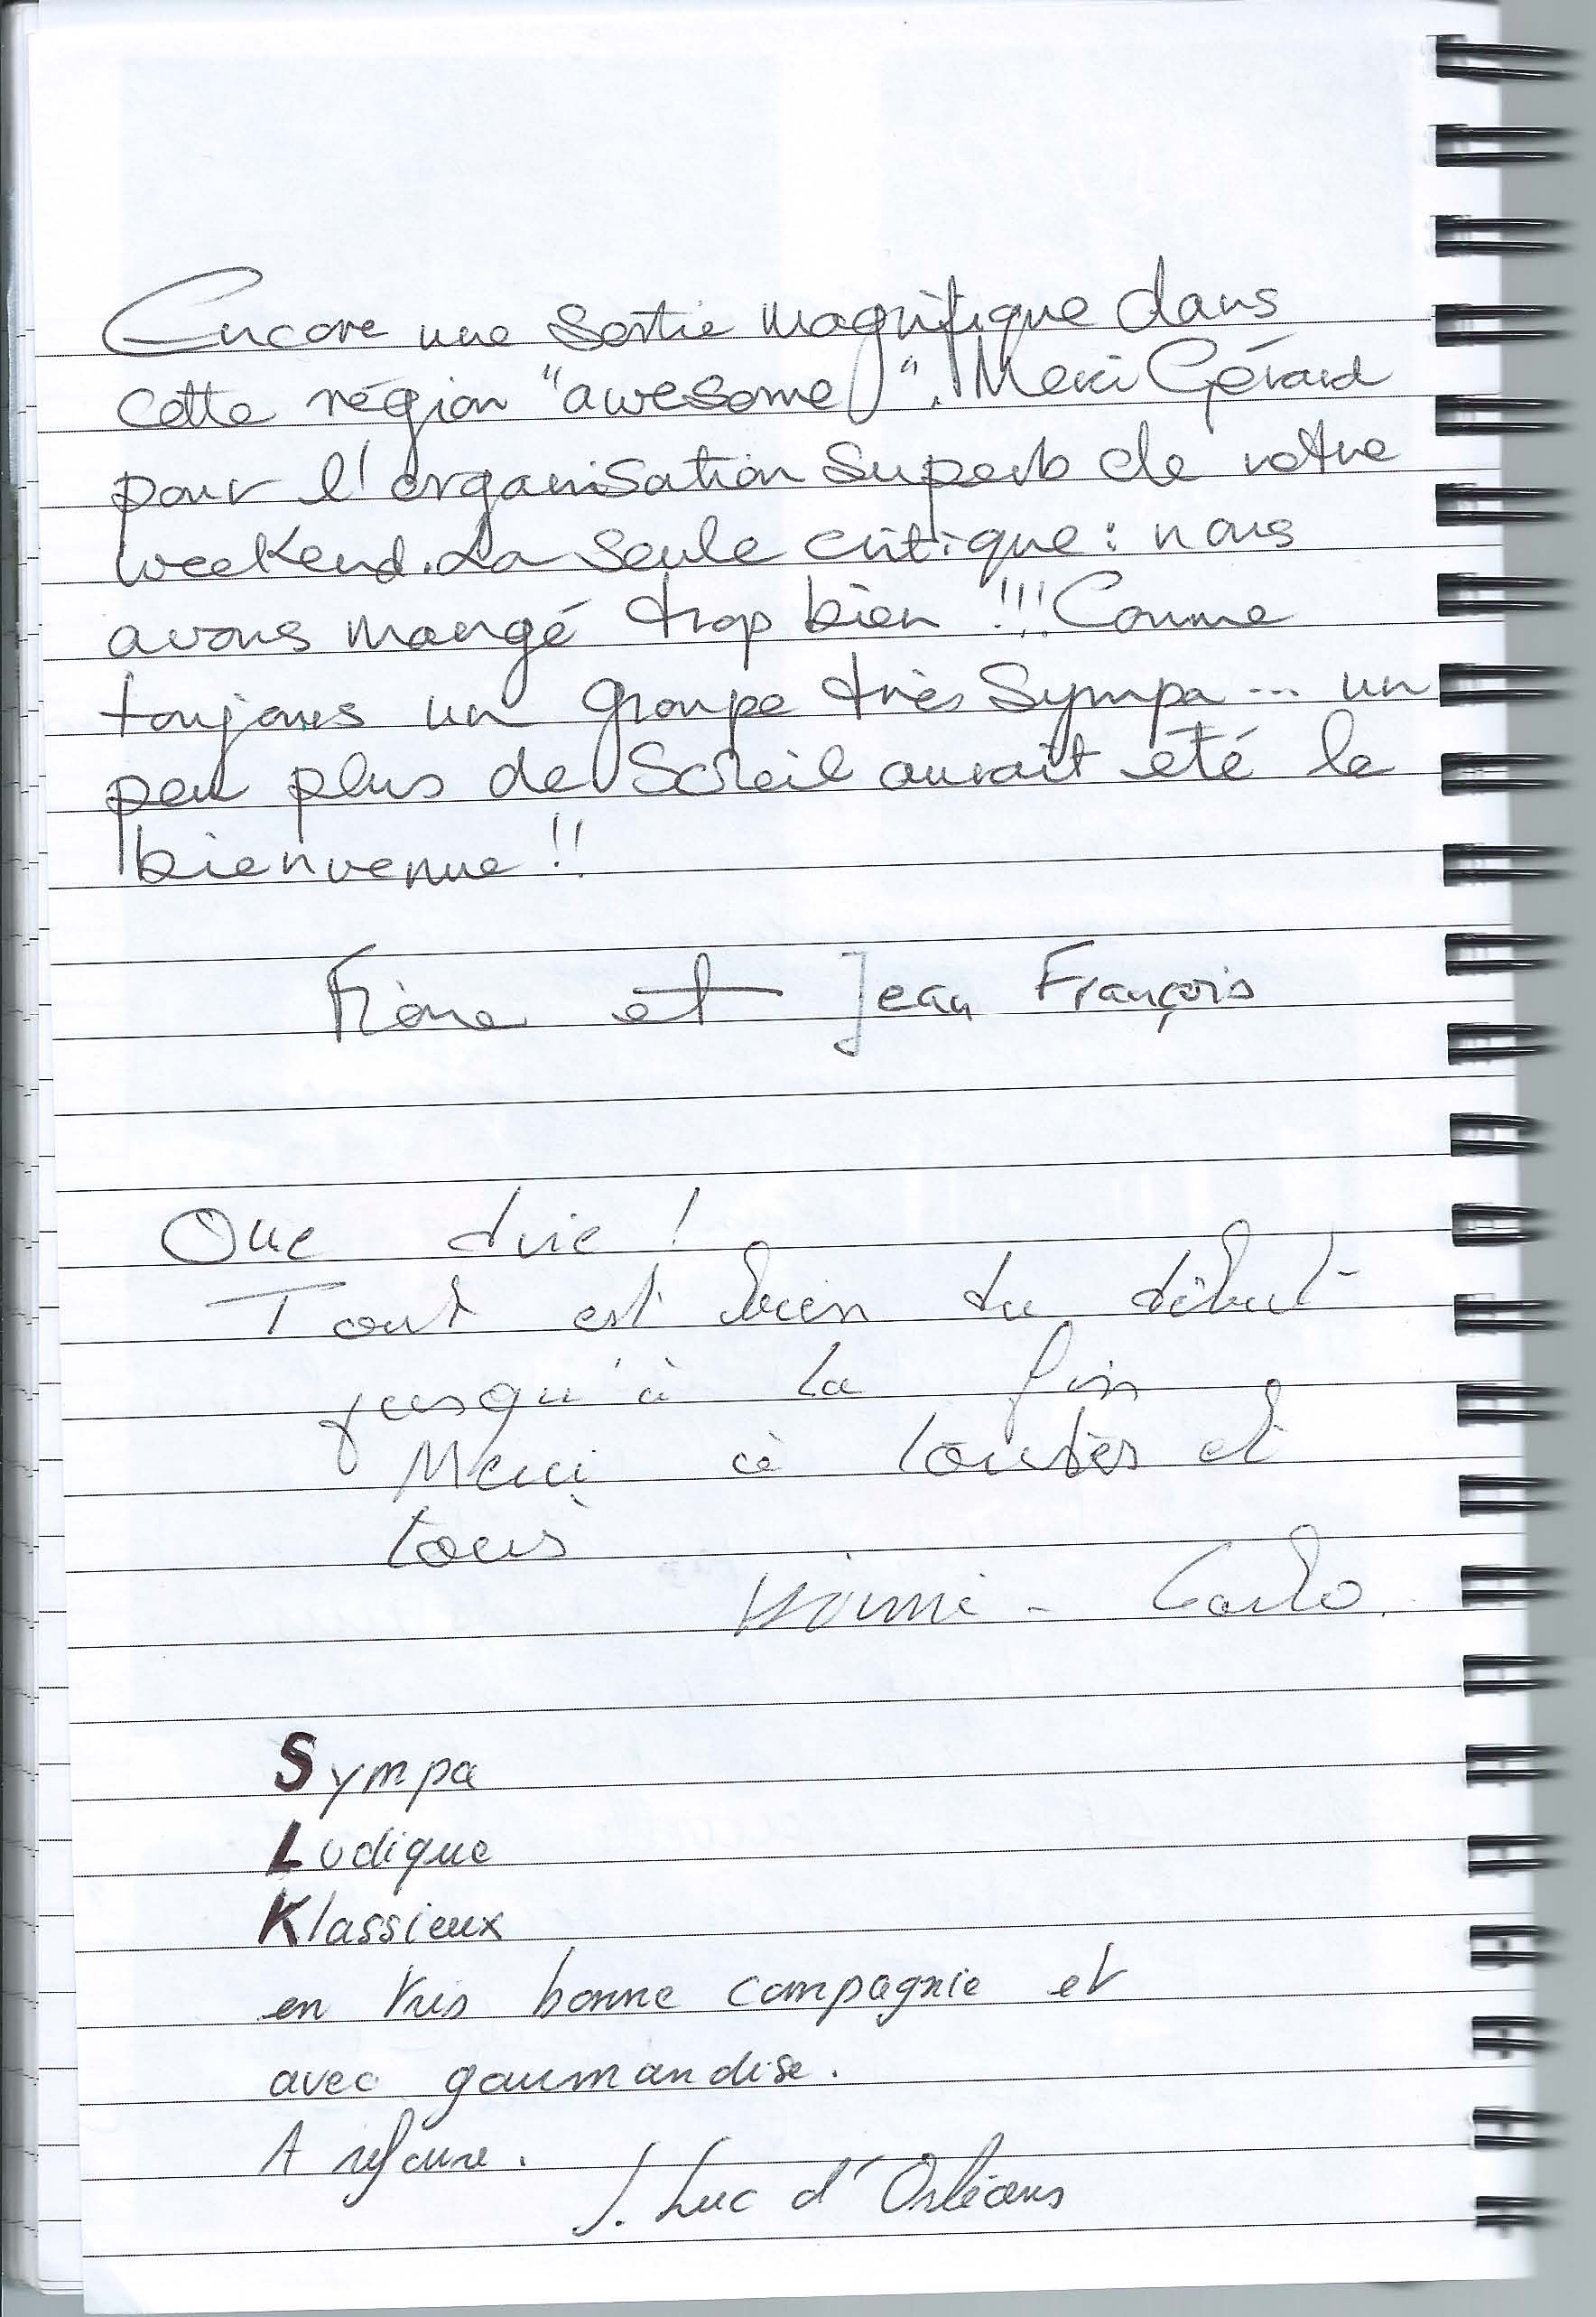 Encore une sortie magnifique dans
cette région "awesome". Merci Gérard
pour l'organisation superb de votre
weekend. La seule critique : nous
avons mangé trop bien !!! Comme
toujours un groupe très sympa... un
peu plus de soleil aurait été le
bienvenue !!
et Jean François
Que dire !
Tout est bien du début
jusqu'à la fin
Merci à toutes et
tous
- Carlo.
Sympa
Ludique
Klassieux
en très bonne compagnie et
avec gourmandise.
A refaire.
J. Luc d'Orléans